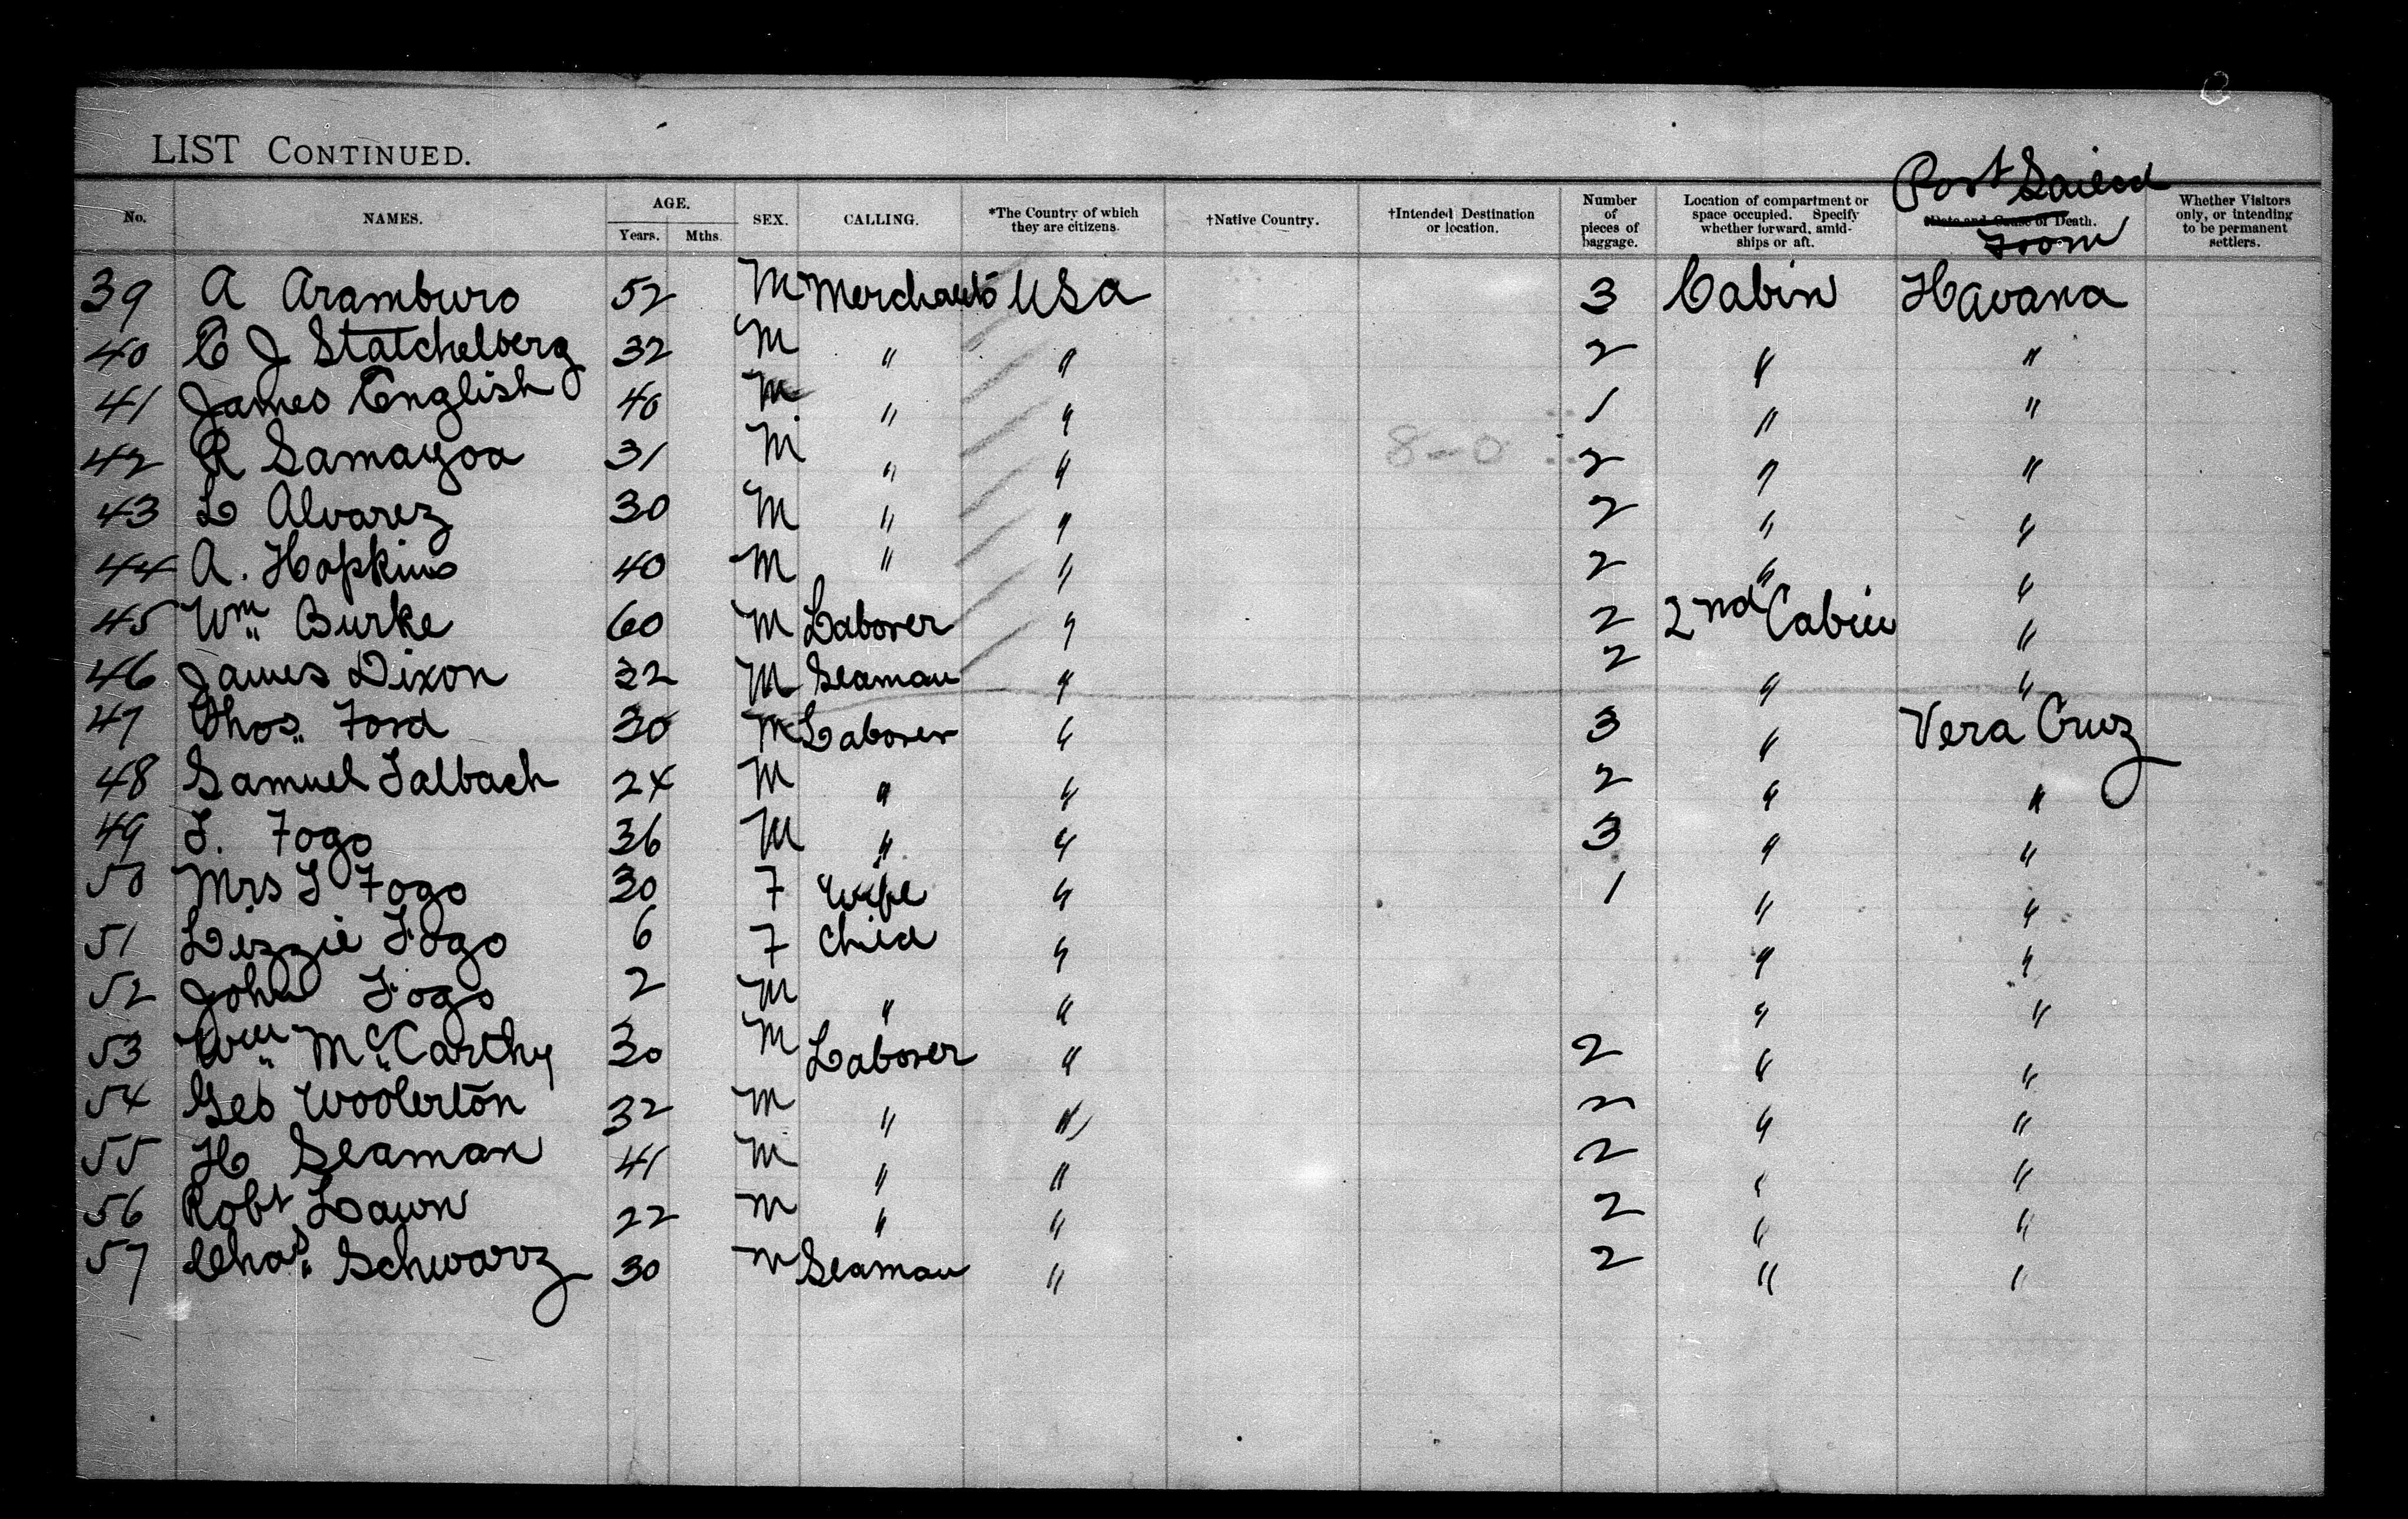 LIST CONTINUED.
Port Sailed from
No. NAMES. AGE. Years. Mths. SEX. CALLING. *The Country of which they are citizens. †Native Country. †Intended Destination or location. Number of pieces of baggage. Location of compartment or space occupied. Specify whether forward, amidships or aft. Date and Cause of Death. Whether Visitors only, or intending to be permanent settlers.
39 A Aramburo 52 M Merchants USA 3 Cabin Havana
40 C J Statchelberg 32 M " " 2 " "
41 James English 40 M " " 1 " "
42 R Samayoa 31 M " " 8-0 2 " "
43 L Alvarez 30 M " " 2 " "
44 A. Hopkins 40 M " " 2 " "
45 Wm Burke 60 M Laborer " 2 2nd Cabin "
46 James Dixon 22 M Seaman " 2 " "
47 Thos. Ford 30 M Laborer " 3 " Vera Cruz
48 Samuel Salbach 24 M " " 2 " "
49 S. Fogo 36 M " " 3 " "
50 Mrs S Fogo 30 F Wife " 1 " "
51 Lizzie Fogo 6 F Child " " "
52 John Fogo 2 M " " " "
53 Wm McCarthy 30 M Laborer " 2 " "
54 Geo Woolerton 32 M " " 2 " "
55 H Seaman 41 M " " 2 " "
56 Robt Lawn 22 M " " 2 " "
57 Chas. Schwarz 30 M Seaman " 2 " "